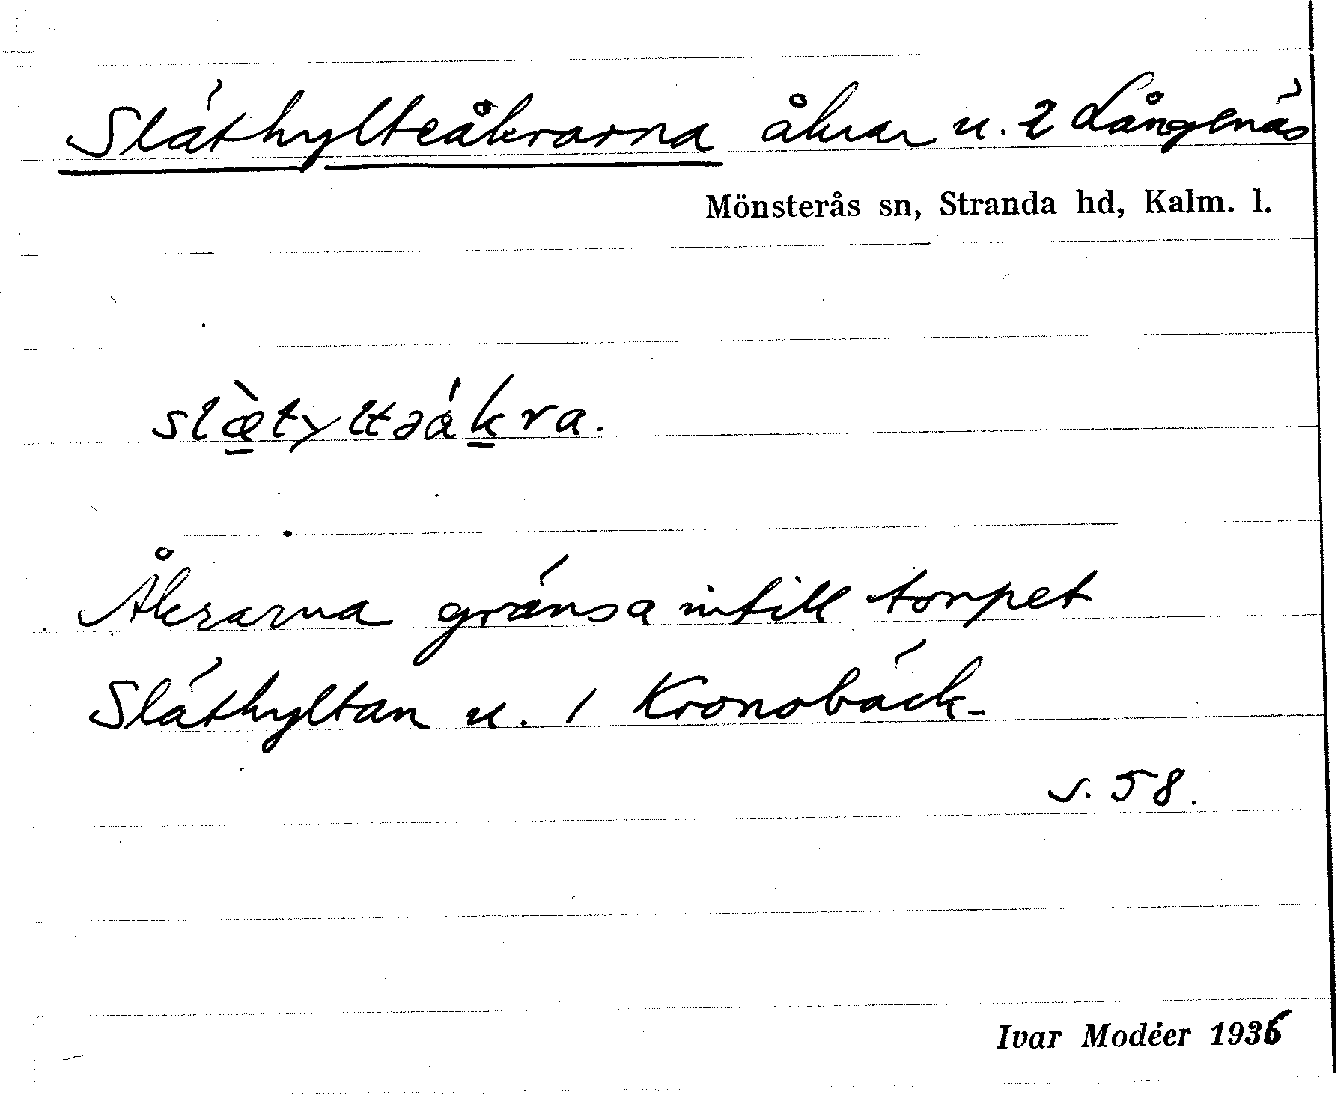 Släthylteåkrarna åkrar u. 2 Långenäs
Mönsterås sn, Stranda hd, Kalm. l.
slæ̀tylltəåkra.
Åkrarna gränsa intill torpet
Släthyltan u. 1 Kronobäck
s. 58.
Ivar Modéer 1936